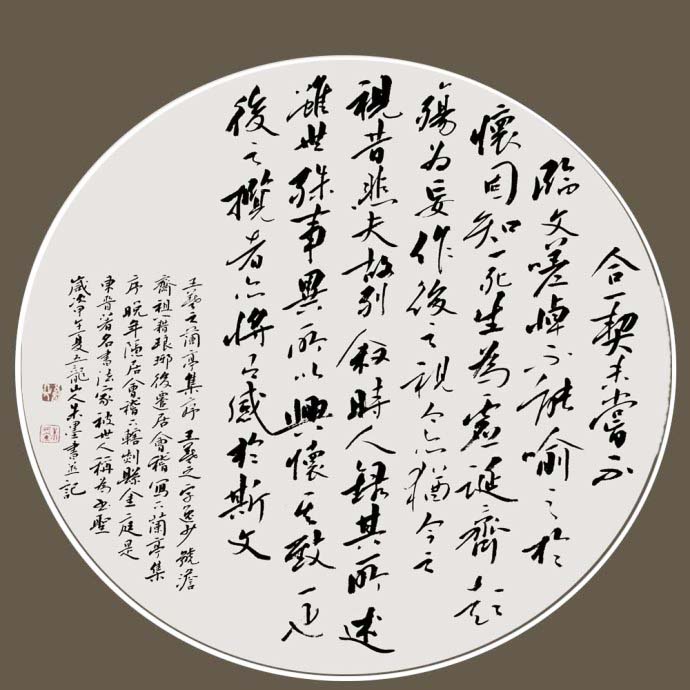 合一契未嘗不
臨文嗟悼不能喻之於
懷固知一死生為虛誕齊彭
殤為妄作後之視今亦猶今之
視昔悲夫故列叙時人錄其所述
雖世殊事異所以興懷其致一也
後之攬者亦將有感於斯文
王羲之蘭亭集序 王羲之字逸少號澹
齋祖籍琅琊後遷居會稽寫下蘭亭集
序晚年隱居會稽下轄剡縣金庭是
東晉著名書法家被世人稱為書聖
歲次甲午夏五龍山人朱墨書並記